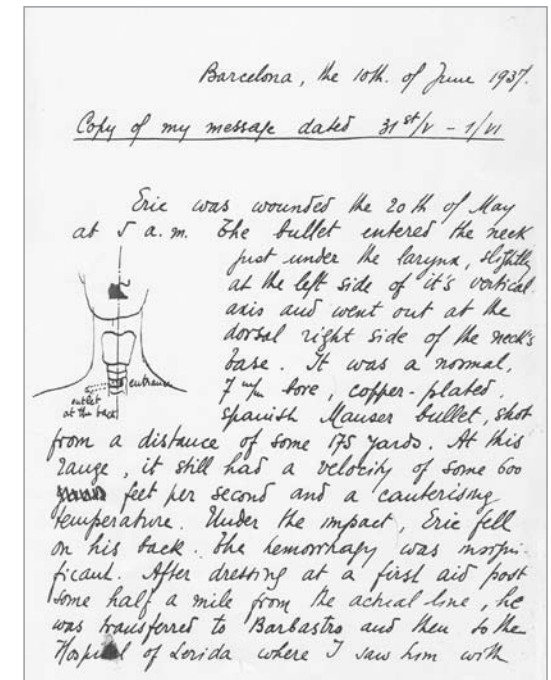 Barcelona, the 10th. of June 1937.
Copy of my message dated 31st/V - 1/VI
Eric was wounded the 20th of May
at 5 a.m. The bullet entered the neck
just under the larynx, slightly
at the left side of it's vertical
axis and went out at the
dorsal right side of the neck's
base. It was a normal,
7 m/m bore, copper-plated,
spanish Mauser bullet, shot
entrance
outlet
at the back
from a distance of some 175 yards. At this
range, it still had a velocity of some 600
feet per second and a cauterising
temperature. Under the impact, Eric fell
on his back. The hemorrhagy was insigni-
ficant. After dressing at a first aid post
some half a mile from the actual line, he
was transferred to Barbastro and then to the
Hospital of Lerida where I saw him with